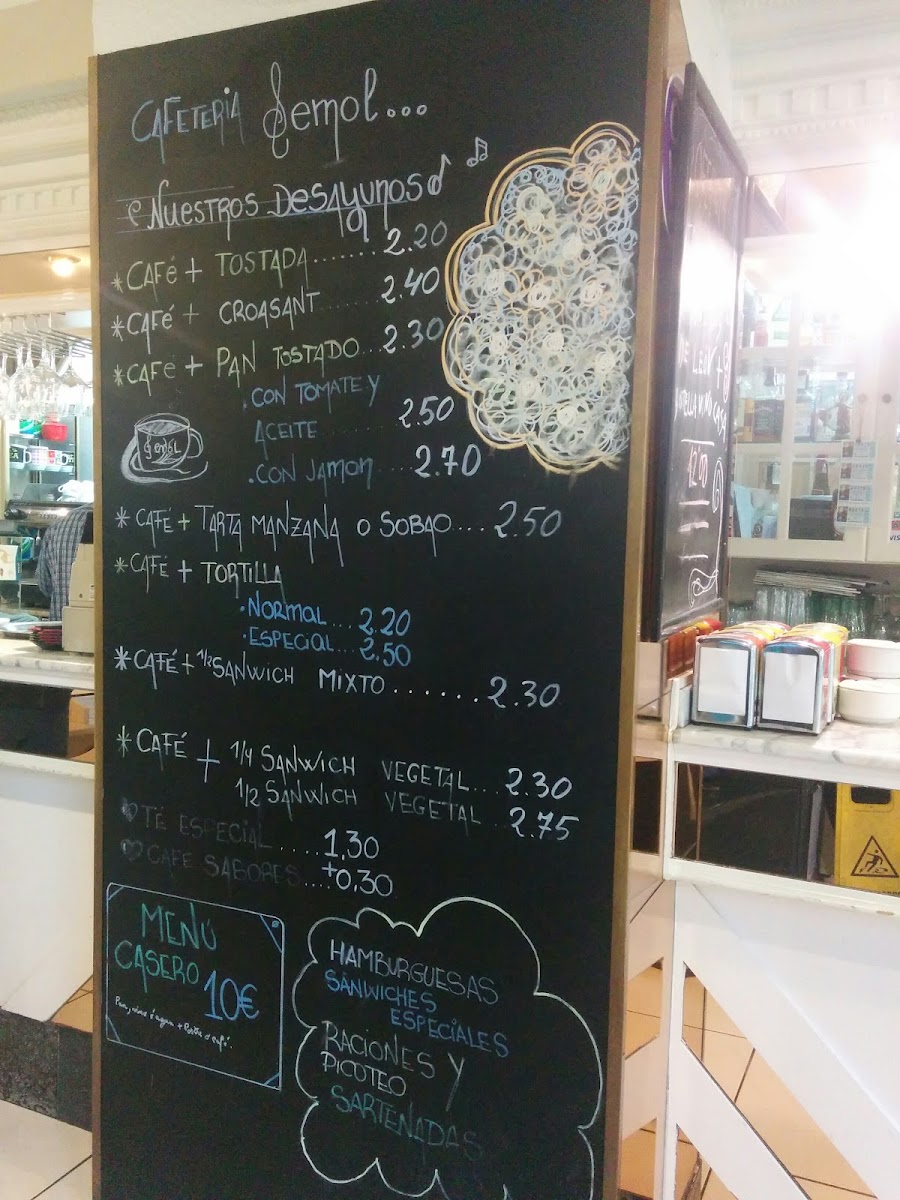 CAFETERIA Gemol...
NUESTROS DESAYUNOS
*CAFÉ + TOSTADA....... 2.20
*CAFÉ + CROASANT ....... 2.40
*CAFÉ + PAN TOSTADO... 2.30
.CON TOMATE Y
ACEITE ....... 2.50
.CON JAMON .... 2.70
*CAFÉ + TARTA MANZANA O SOBAO... 2.50
*CAFÉ + TORTILLA
.NORMAL... 2.20
.ESPECIAL.... 2.50
*CAFÉ + 1/2 SANWICH MIXTO ....... 2.30
*CAFÉ + 1/4 SANWICH VEGETAL... 2.30
1/2 SANWICH VEGETAL ... 2.75
TÉ ESPECIAL..... 1,30
CAFE SABORES.... +0,30
MENÚ
CASERO 10€
HAMBURGUESAS
SANWICHES
ESPECIALES
RACIONES Y
PICOTEO
SARTENADAS
DE LEON
12'00